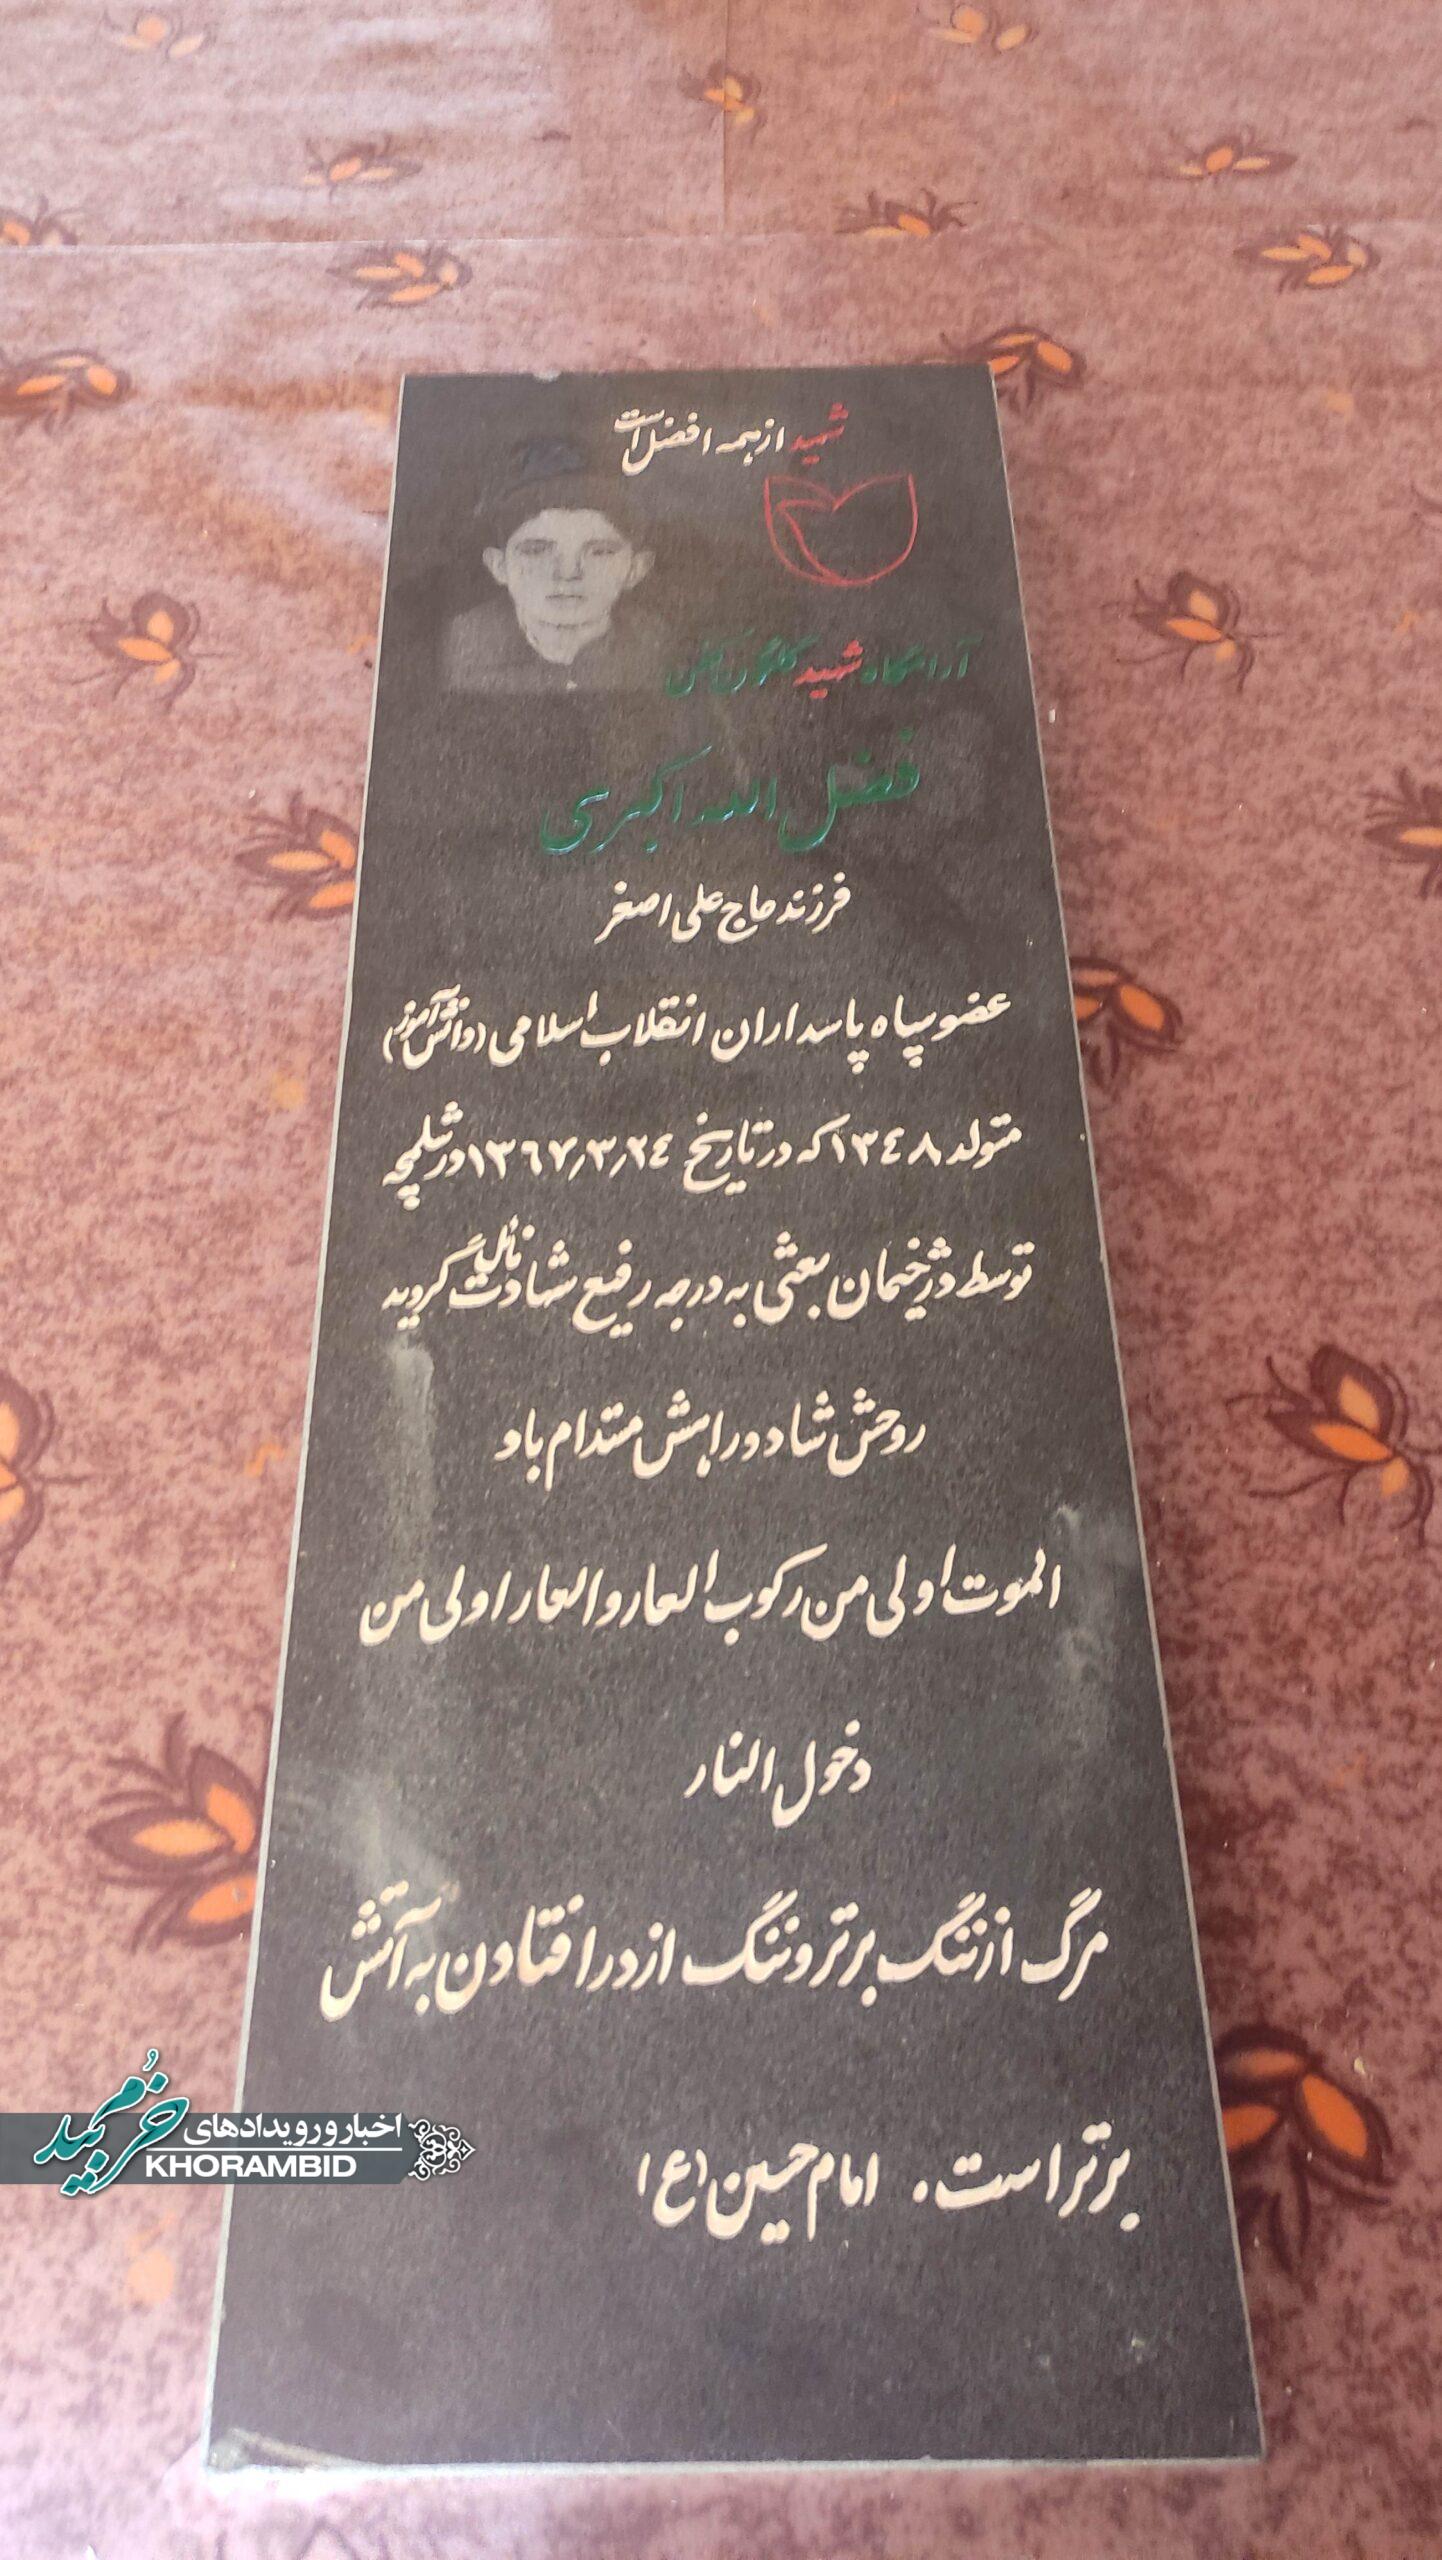 شهید از همه افضل است
آرامگاه شهید گلگون کفن
فضل الله اکبری
فرزند حاج علی اصغر
عضو سپاه پاسداران انقلاب اسلامی (دانش آموز)
متولد ۱۳۴۸ که در تاریخ ۱۳۶۷٫۳٫۲۴ در شلمچه
توسط دژخیمان بعثی به درجه رفیع شهادت نائل گردید
روحش شاد و راهش مستدام باد
الموت اولی من رکوب العار والعار اولی من
دخول النار
مرگ از ننگ برتر و ننگ از در افتادن به آتش
برتر است. امام حسین (ع)
اخبار و رویدادهای
خُرمبید
KHORAMBID